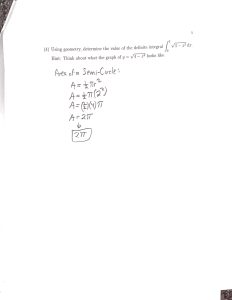 (4) Using geometry, determine the value of the definite integral ∫ √4 − x² dx
Hint: Think about what the graph of y = √4 − x² looks like.
Area of a Semi-Circle:
A = ½πr²
A = ½π(2²)
A = (½)(4)π
A = 2π
↓
2π